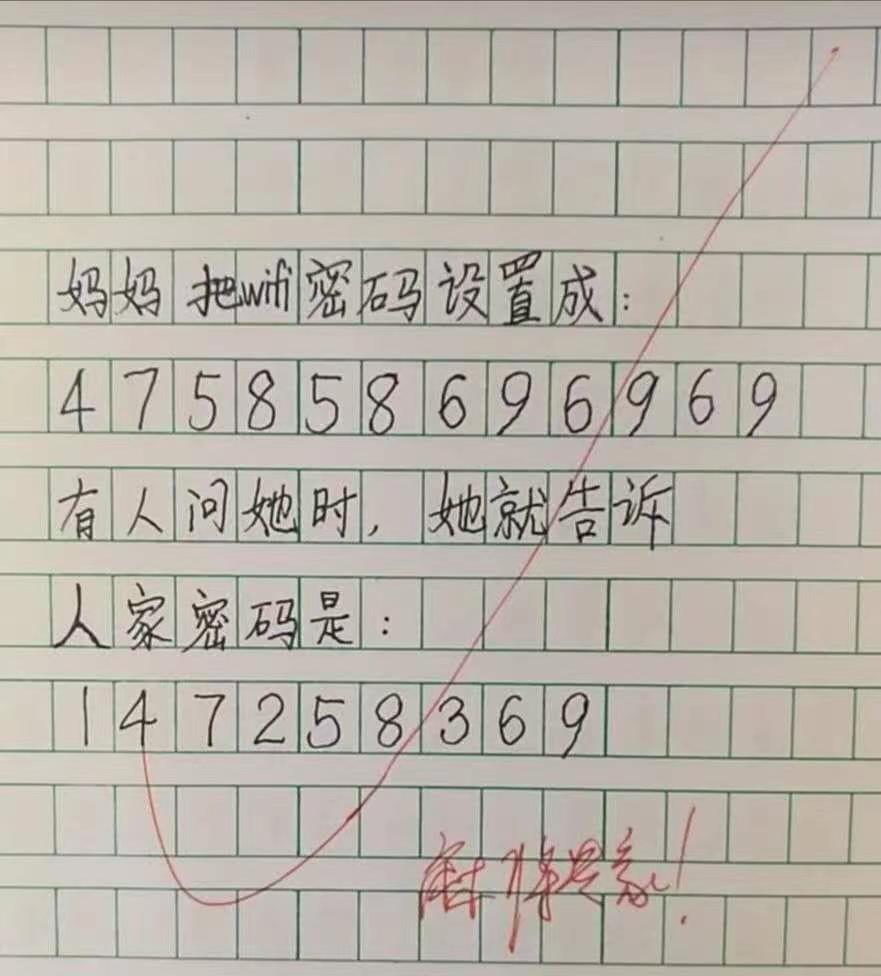 妈妈把wifi密码设置成：
475858696969
有人问她时，她就告诉
人家密码是：
147258369
麻将是家！